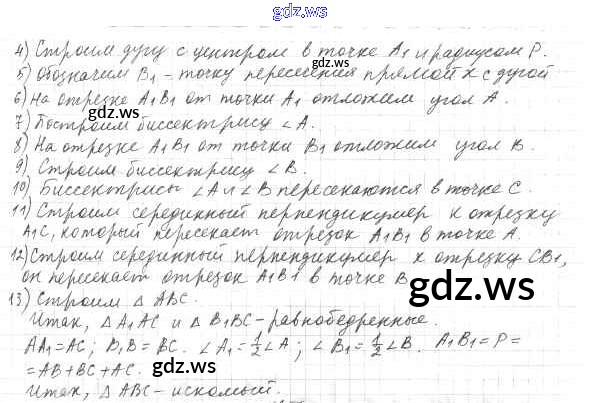 gdz.ws
4) Строим дугу с центром в точке A₁ и радиусом P.
5) Обозначим B₁ - точку пересечения прямой x с дугой
6) На отрезке A₁B₁ от точки A₁ отложим угол A.
gdz.ws
7) Построим биссектрису ∠A.
8) На отрезке A₁B₁ от точки B₁ отложим угол B.
9) Строим биссектрису ∠B.
gdz.ws
10) Биссектрисы ∠A и ∠B пересекаются в точке C.
11) Строим серединный перпендикуляр к отрезку
A₁C, который пересекает отрезок A₁B₁ в точке A.
gdz.ws
12) Строим серединный перпендикуляр к отрезку CB₁,
он пересекает отрезок A₁B₁ в точке B
gdz.ws
13) Строим △ ABC.
Итак, △ A₁AC и △ B₁BC - равнобедренные.
AA₁ = AC; B₁B = BC. ∠A₁ = ½∠A; ∠B₁ = ½∠B. A₁B₁ = P =
= AB + BC + AC.
gdz.ws
Итак, △ ABC - искомый.
gdz.ws